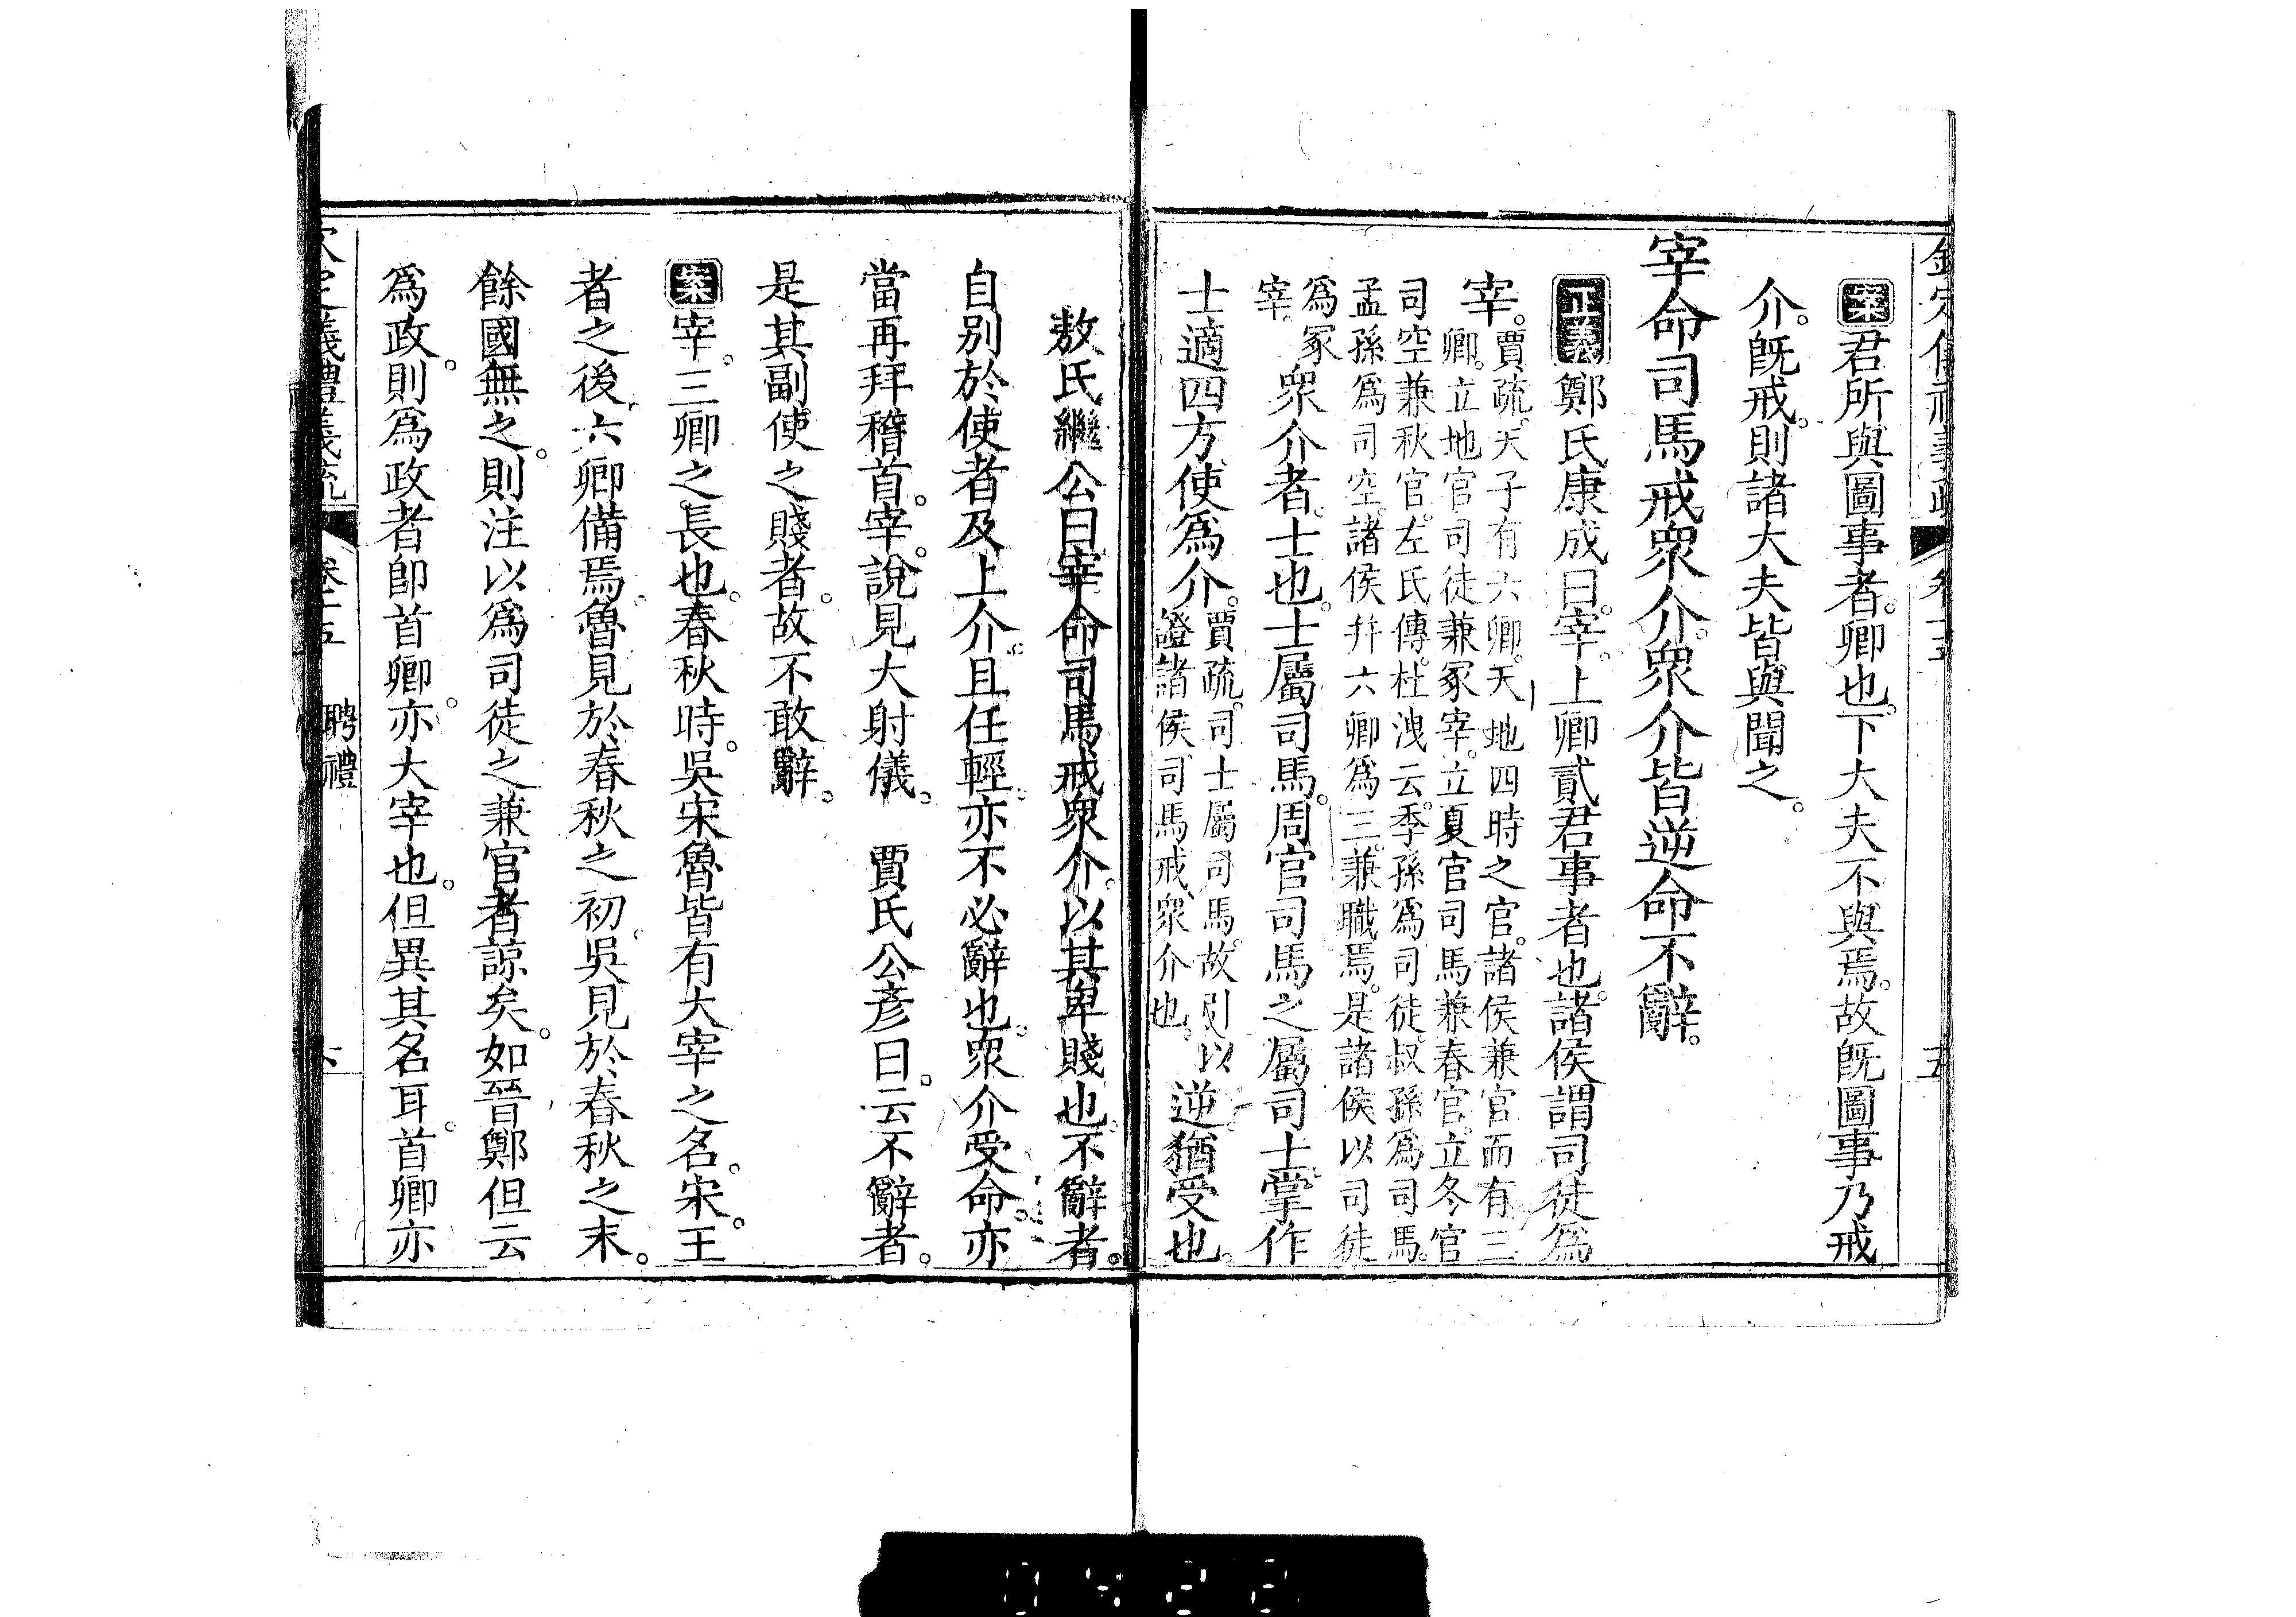 欽定儀禮義疏 卷十五 五
案君所與圖事者。卿也。下大夫不與焉。故旣圖事乃戒
介。旣戒。則諸大夫皆與聞之。
宰命司馬戒衆介。衆介皆逆命不辭。
正義鄭氏康成曰。宰。上卿貳君事者也。諸侯謂司徒爲
宰。
賈疏。天子有六卿。天地四時之官。諸侯兼官而有三
卿。立地官司徒兼冢宰。立夏官司馬兼春官。立冬官
司空兼秋官。左氏傳。杜洩云。季孫爲司徒。叔孫爲司馬。
孟孫爲司空。諸侯并六卿爲三。兼職焉。是諸侯以司徒
爲冢
宰
衆介者。士也。士屬司馬。周官司馬之屬司士。掌作
士適四方。使爲介。
賈疏。司士屬司馬。故引以
證諸侯司馬戒衆介也。
逆。猶受也。
敖氏繼公曰。宰命司馬戒衆介。以其卑賤也。不辭者。
自別於使者及上介。且任輕。亦不必辭也。衆介受命。亦
當再拜稽首。宰。說見大射儀。 賈氏公彥曰。云不辭者。
是其副使之賤者。故不敢辭。
案宰。三卿之長也。春秋時。吳宋魯皆有大宰之名。宋。王
者之後。六卿備焉。魯見於春秋之初。吳見於春秋之末。
餘國無之。則注以爲司徒之兼官者諒矣。如晉鄭但云
爲政。則爲政者卽首卿。亦大宰也。但異其名耳。首卿亦
欽定儀禮義疏 卷十五 聘禮 六